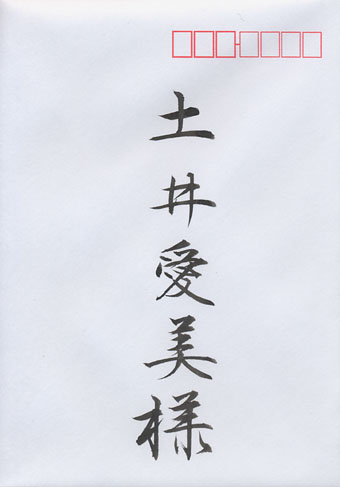 土井愛美様